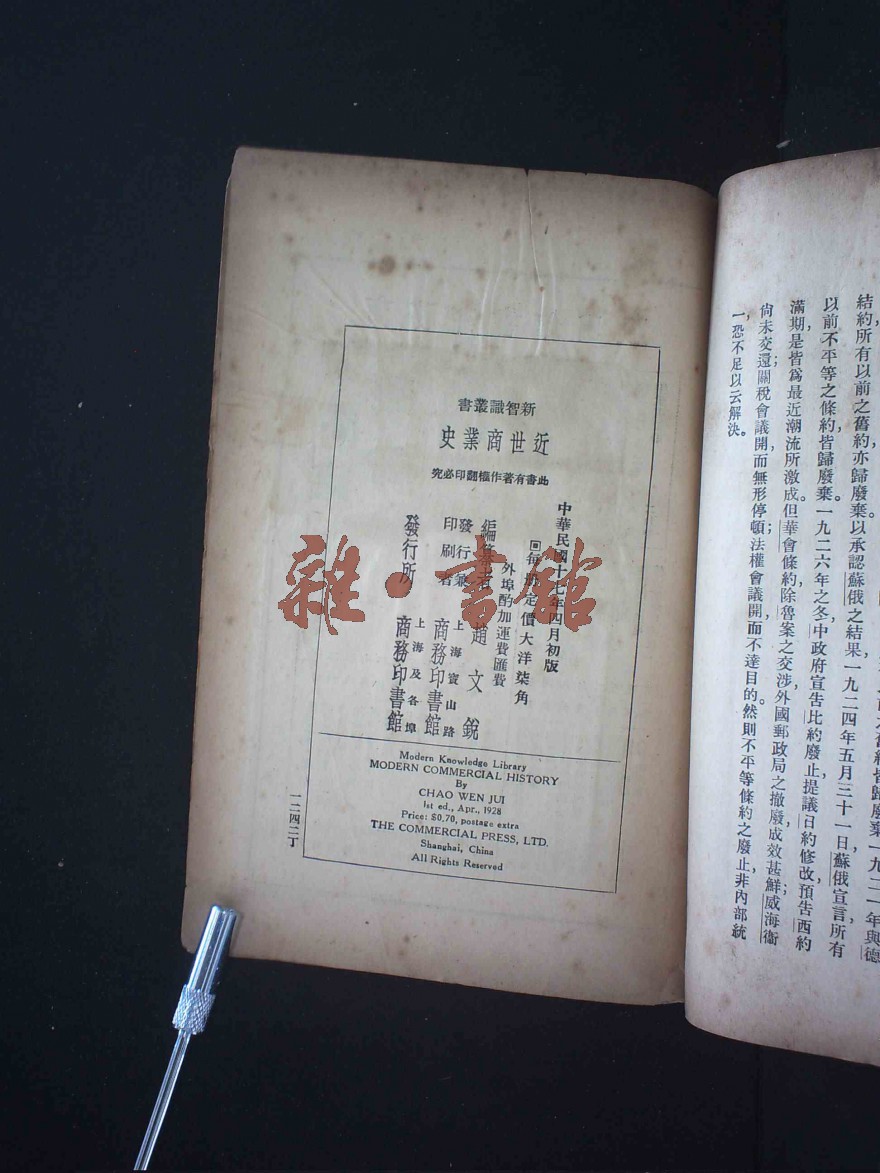 皆歸廢棄一九二一年與德
結約,所有以前之舊約亦歸廢棄。以承認蘇俄之結果,一九二四年五月三十一日,蘇俄宣言,所有
以前不平等之條約,皆歸廢棄。一九二六年之冬,中政府宣告比約廢止,提議日約修改,預告西約
滿期,是皆爲最近潮流所激成。但華會條約,除魯案之交涉,外國郵政局之撤廢,成效甚鮮;威海衞
尚未交還;關稅會議開而無形停頓;法權會議開而不達目的。然則不平等條約之廢止,非內部統
一,恐不足以云解決。
新智識叢書
近世商業史
此書有著作權翻印必究
中華民國十七年四月初版
每冊定價大洋柒角
外埠酌加運費匯費
編纂者 趙文銳
發行兼印刷者 上海寶山路 商務印書館
發行所 上海及各埠 商務印書館
Modern Knowledge Library
MODERN COMMERCIAL HISTORY
By
CHAO WEN JUI
1st ed., Apr., 1928
Price: $0.70, postage extra
THE COMMERCIAL PRESS, LTD.
Shanghai, China
All Rights Reserved
一二四二丁
雜·書館